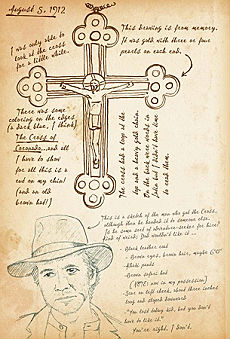 August 5, 1912
This drawing is from memory.
It was gold with three or four
pearls on each end.
I was only able to
look at the cross
for a little while.
There was some
coloring on the edges
(a dark blue, I think)
The Cross of
Coronado...and all
I have to show
for all this is a
cut on my chin!
(and an old
brown hat!)
The cross had a loop at the
top and a heavy gold chain.
On the back were words in
Latin, but I didn't have time
to read them.
This is a sketch of the man who got the Cross,
although then he handed it to someone else.
(to be some sort of adventure-seeker for hire)
kind of minds Dad wouldn't like it ...
- Black leather coat
- Brown eyes, brown hair, maybe
- Khaki pants
- Brown safari hat
(NOW in my possession)
- Scar on left cheek, about three inches
long and sloped downward
"You lost today, kid, but you don't
have to like it."
You're right. I don't.